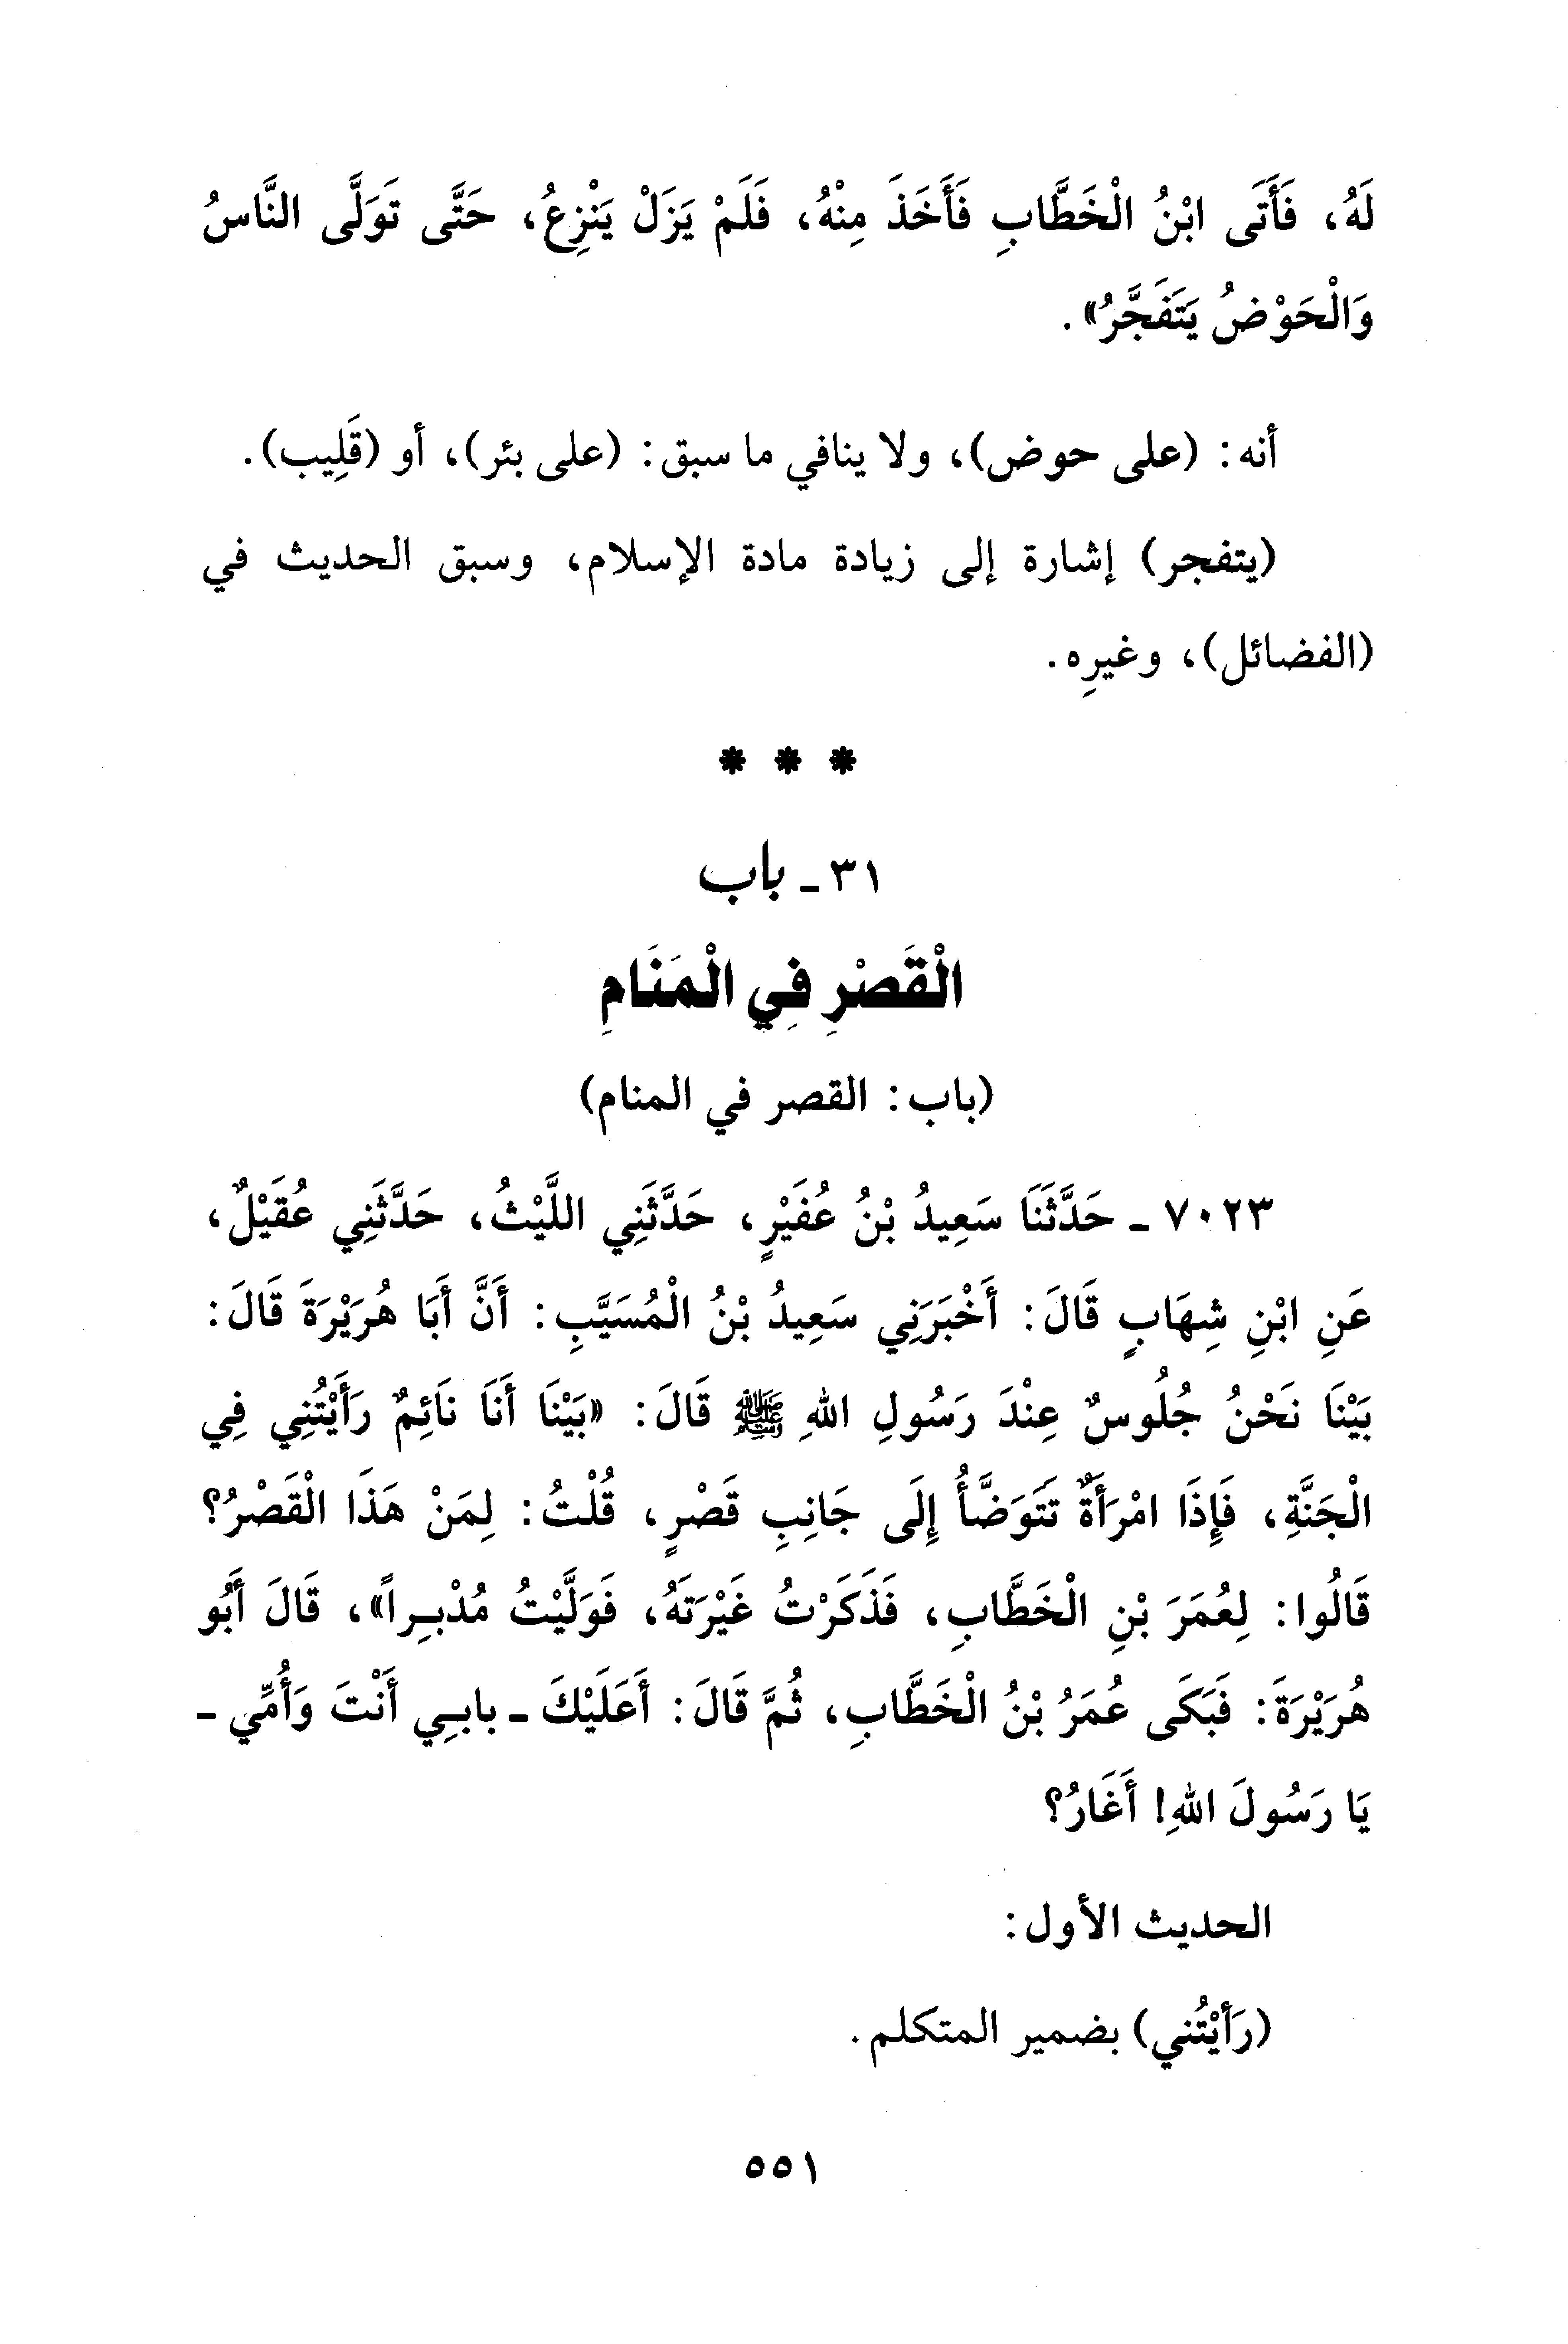 لَهُ، فَأَتَى ابْنُ الْخَطَّابِ فَأَخَذَ مِنْهُ، فَلَمْ يَزَلْ يَنْزِعُ، حَتَّى تَوَلَّى النَّاسُ
وَالْحَوْضُ يَتَفَجَّرُ».
أنه: (على حوض)، ولا ينافي ما سبق: (على بئر)، أو (قَلِيب).
(يتفجر) إشارة إلى زيادة مادة الإسلام، وسبق الحديث في
(الفضائل)، وغيرِه.
* * *
٣١ - باب
الْقَصْرِ فِي الْمَنَامِ
(باب: القصر في المنام)
٧٠٢٣ - حَدَّثَنَا سَعِيدُ بْنُ عُفَيْرٍ، حَدَّثَنِي اللَّيْثُ، حَدَّثَنِي عُقَيْلٌ،
عَنِ ابْنِ شِهَابٍ قَالَ: أَخْبَرَنِي سَعِيدُ بْنُ الْمُسَيَّبِ: أَنَّ أَبَا هُرَيْرَةَ قَالَ:
بَيْنَا نَحْنُ جُلُوسٌ عِنْدَ رَسُولِ اللهِ ﷺ قَالَ: «بَيْنَا أَنَا نَائِمٌ رَأَيْتُنِي فِي
الْجَنَّةِ، فَإِذَا امْرَأَةٌ تَتَوَضَّأُ إِلَى جَانِبِ قَصْرٍ، قُلْتُ: لِمَنْ هَذَا الْقَصْرُ؟
قَالُوا: لِعُمَرَ بْنِ الْخَطَّابِ، فَذَكَرْتُ غَيْرَتَهُ، فَوَلَّيْتُ مُدْبِراً»، قَالَ أَبُو
هُرَيْرَةَ: فَبَكَى عُمَرُ بْنُ الْخَطَّابِ، ثُمَّ قَالَ: أَعَلَيْكَ - بابِي أَنْتَ وَأُمِّي -
يَا رَسُولَ اللهِ! أَغَارُ؟
الحديث الأول:
(رَأَيْتُني) بضمير المتكلم.
٥٥١